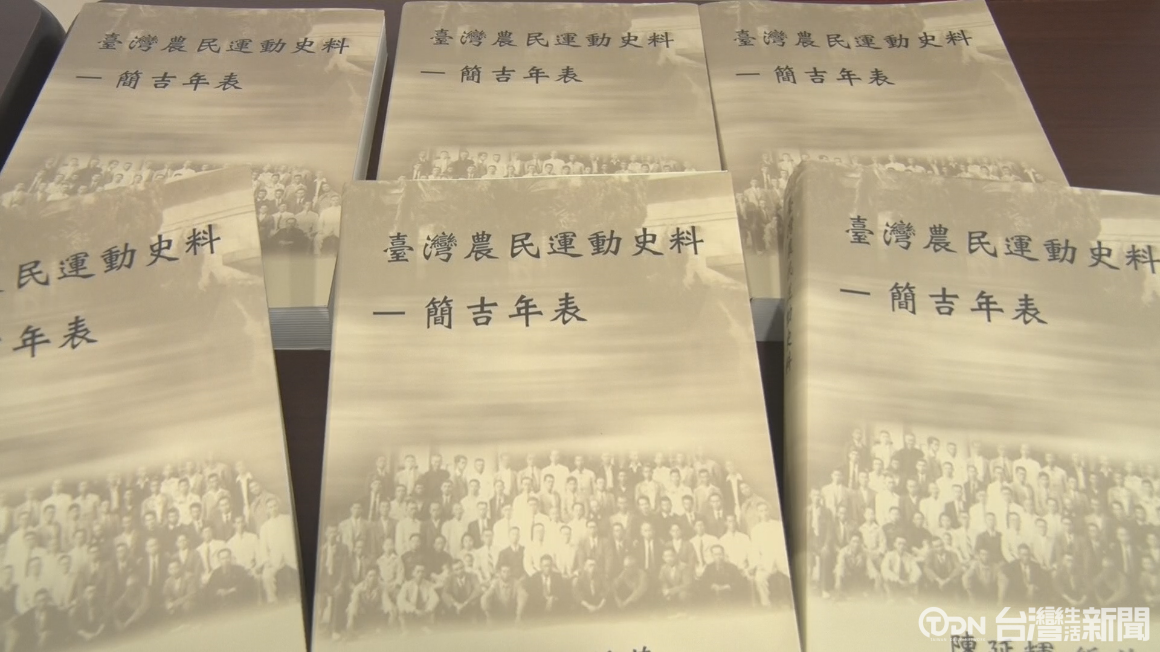 臺灣農民運動史料
一簡吉年表
臺灣農民運動史料
一簡吉年表
臺灣農民運動史料
一簡吉年表
民運動史料
年表
臺灣農民運動史料
一簡吉年表
臺灣農民運動史料
一簡吉年表
陳延輝
TDN 台灣生活新聞